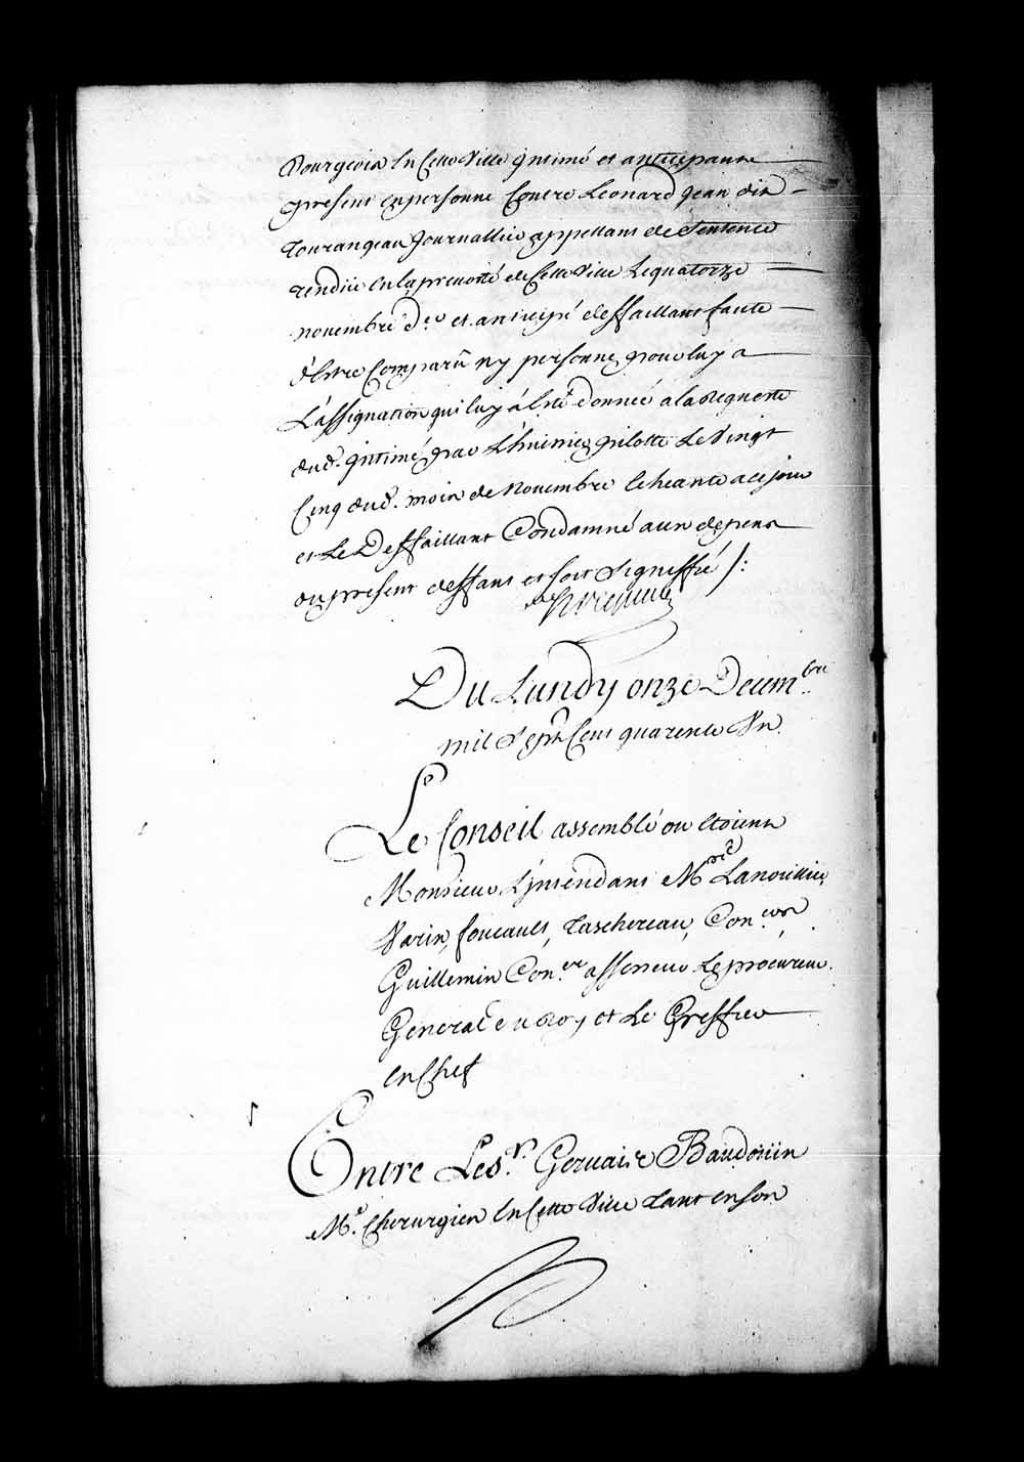 Bourgeois En Cette Ville jntimé et anticipant
present en personne Contre Leonard Jean dit
Tourangeau Journallier appellant de Sentence
rendüe En la prevosté de Cette Ville Le quatorze
novembre d.er et anticipé deffaillant faute
d'Estre Comparû ny personne pour luy a
L'assignation qui luy á Esté donnée a la Requeste
dud. jntimé par L'huissier Vingt
Cinq dud. mois de Novembre Echeante a ce jour
et Le Deffaillant Condamné aux depens
du present deffaut et soit Signiffié /:
Du Lundy onze Decembre
mil Sept Cent quarente Vn
Le Conseil assemblé ou Etoient
Monsieur L'jntendant M.re Lanoüillier,
Varin, foucault, Taschereau, Con.ers
Guillemin Con.er assesseur Le procureur
General du Roy et Le Greffier
En Chef
Entre Le S.r Gervais Baudoüin
M.e Chirurgien En Cette Ville tant en son